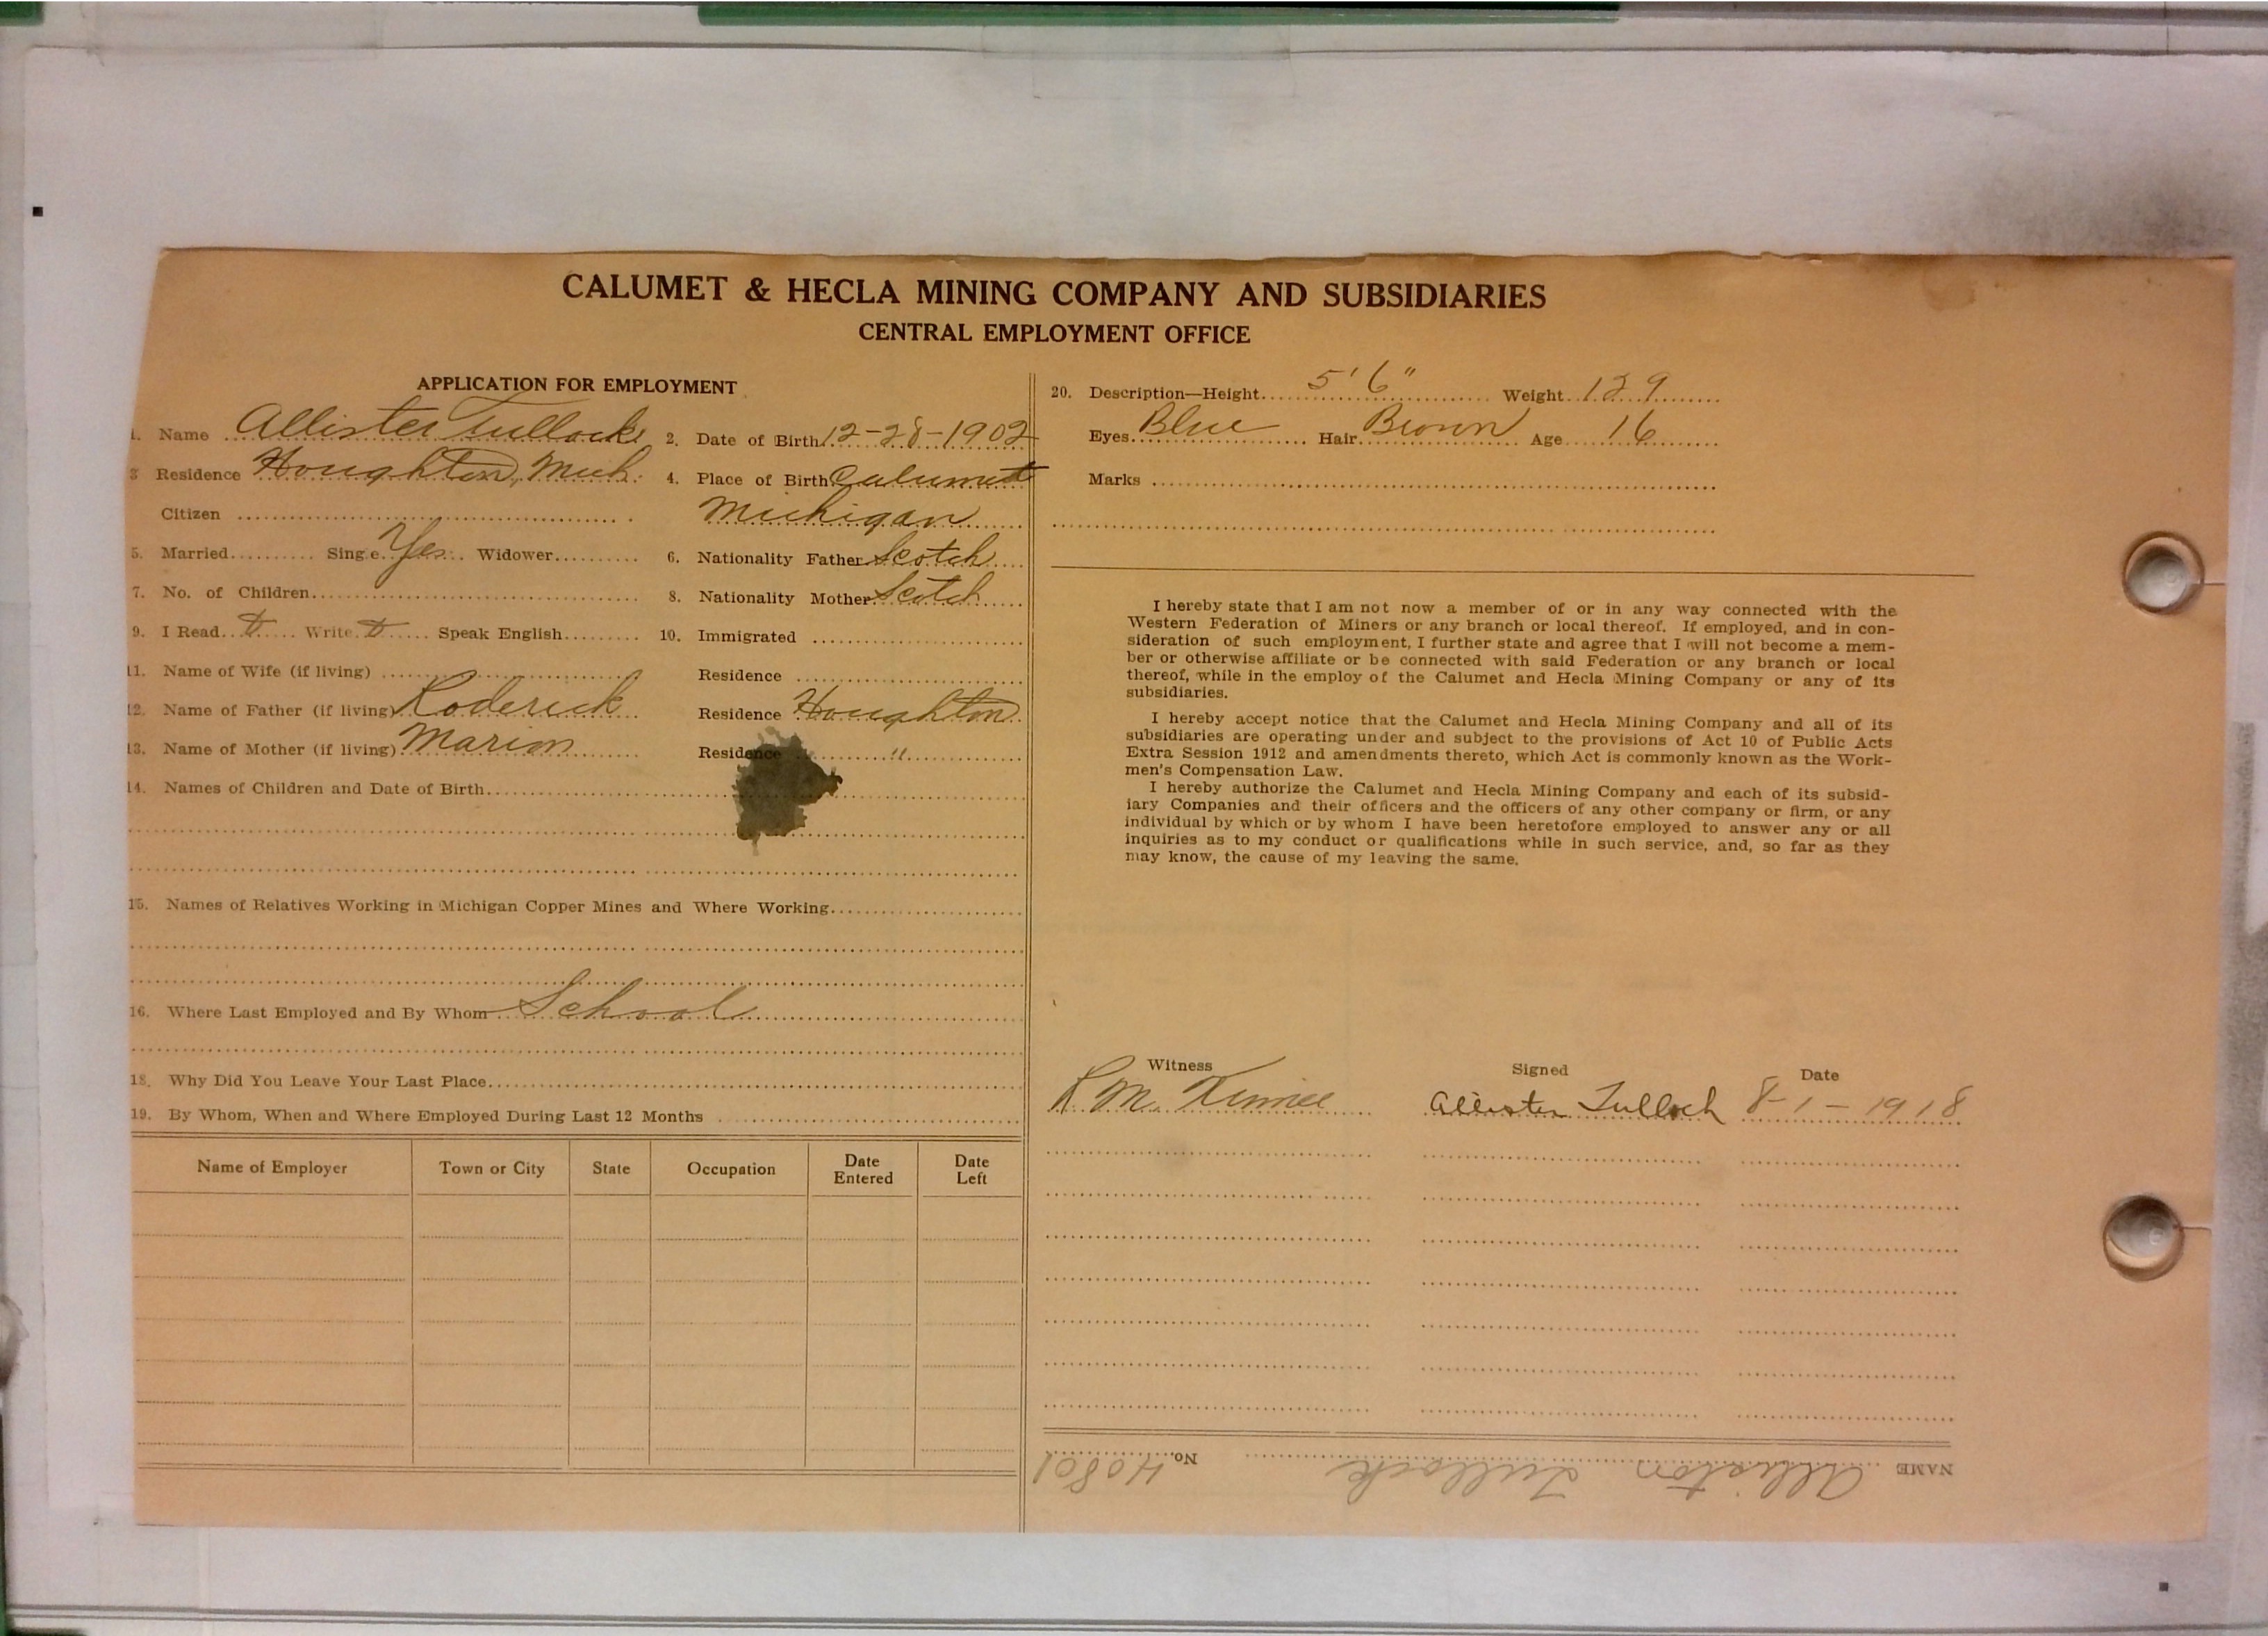 CALUMET & HECLA MINING COMPANY AND SUBSIDIARIES
CENTRAL EMPLOYMENT OFFICE
APPLICATION FOR EMPLOYMENT
1. Name Allister Tullock 2. Date of Birth 12-28-1902
3 Residence Houghton, Mich. 4. Place of Birth Calumet
Citizen Michigan
5. Married Single Yes Widower 6. Nationality Father Scotch
7. No. of Children 8. Nationality Mother Scotch
9. I Read Write Speak English 10. Immigrated
11. Name of Wife (if living) Residence
12. Name of Father (if living) Roderick Residence Houghton
13. Name of Mother (if living) Marion Residence "
14. Names of Children and Date of Birth
15. Names of Relatives Working in Michigan Copper Mines and Where Working
16. Where Last Employed and By Whom School
18. Why Did You Leave Your Last Place
19. By Whom, When and Where Employed During Last 12 Months
Name of Employer Town or City State Occupation Date Entered Date Left
20. Description—Height 5' 6" Weight 129
Eyes Blue Hair Brown Age 16
Marks
I hereby state that I am not now a member of or in any way connected with the
Western Federation of Miners or any branch or local thereof. If employed, and in con-
sideration of such employment, I further state and agree that I will not become a mem-
ber or otherwise affiliate or be connected with said Federation or any branch or local
thereof, while in the employ of the Calumet and Hecla Mining Company or any of its
subsidiaries.
I hereby accept notice that the Calumet and Hecla Mining Company and all of its
subsidiaries are operating under and subject to the provisions of Act 10 of Public Acts
Extra Session 1912 and amendments thereto, which Act is commonly known as the Work-
men's Compensation Law.
I hereby authorize the Calumet and Hecla Mining Company and each of its subsid-
iary Companies and their officers and the officers of any other company or firm, or any
individual by which or by whom I have been heretofore employed to answer any or all
inquiries as to my conduct or qualifications while in such service, and, so far as they
may know, the cause of my leaving the same.
Witness Signed Date
R. M. Allister Tulloch 8-1-1918
NAME Alliston Tullock No. 40801